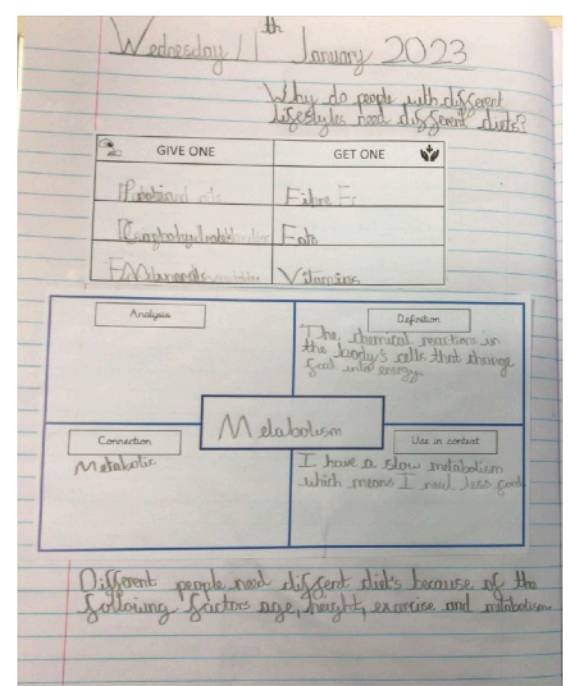 Wednesday 11th January 2023
Why do people with different
lifestyles need different diets?
GIVE ONE GET ONE
Protein Fibre
Carbohydrates Fats
Minerals Vitamins
Analysis Definition
The chemical reactions in
the body's cells that change
food into energy.
Metabolism
Connection Use in context
Metabolic I have a slow metabolism
which means I need less food
Different people need diffent diets because of the
following factors age, height, exercise and metabolism